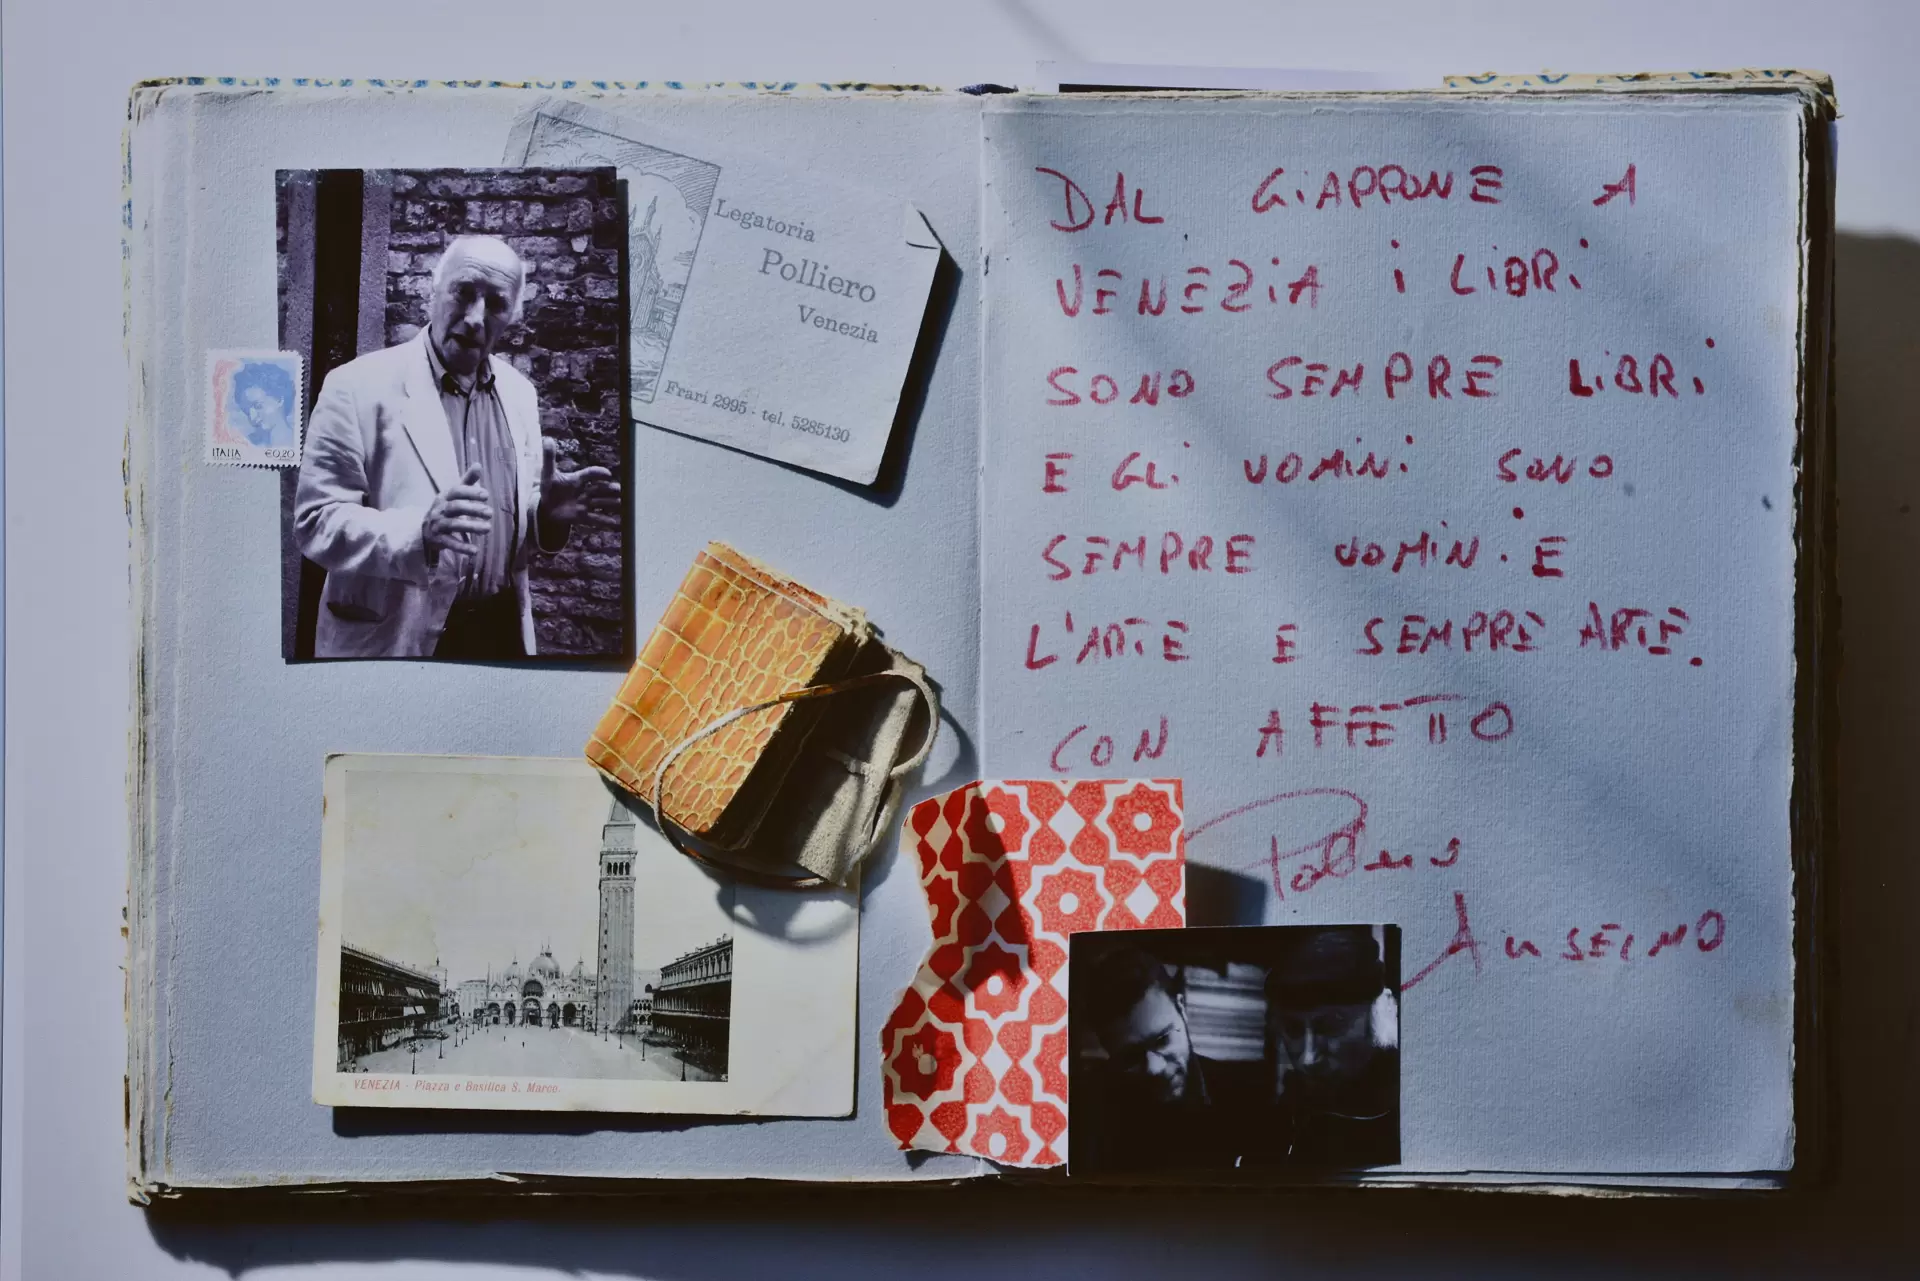 Legatoria
Polliero
Venezia
Frari 2995 - tel. 5285130
ITALIA €0,20
VENEZIA - Piazza e Basilica S. Marco.
DAL GIAPPONE A
VENEZIA i LIBRI
SONO SEMPRE LIBRI
E GLI UOMINI SONO
SEMPRE UOMINI E
L'ARTE E SEMPRE ARTE.
CON AFFETTO
ANSELMO